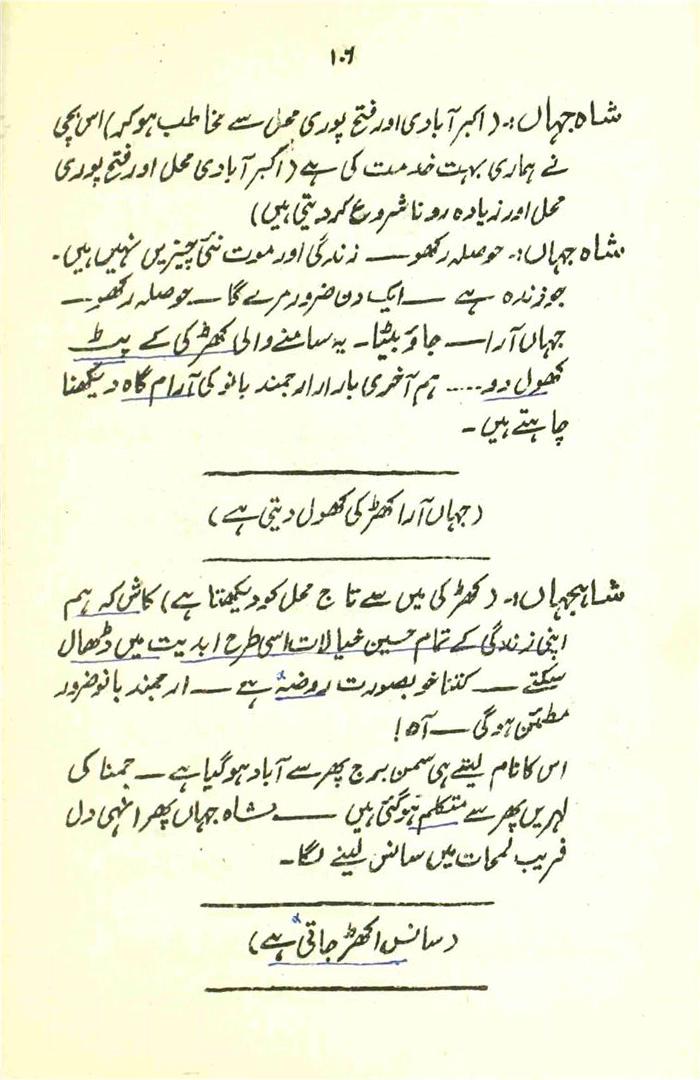 ۱۰۶
شاہ جہاں:۔ (اکبر آبادی اور فتح پوری محل سے مخاطب ہوکر) اس بچی
نے ہماری بہت خدمت کی ہے (اکبر آبادی محل اور فتح پوری
محل اور زیادہ رونا شروع کر دیتی ہیں)
شاہ جہاں:۔ حوصلہ رکھو ــــ زندگی اور موت نئی چیزیں نہیں ہیں۔
جو زندہ ہے ــــ ایک دن ضرور مرے گا ــــ حوصلہ رکھو ــــ
جہاں آرا ــــ جاؤ بیٹا۔ یہ سامنے والی کھڑکی کے پٹ
کھول دو.... ہم آخری بار ارجمند بانو کی آرام گاہ دیکھنا
چاہتے ہیں۔
(جہاں آرا کھڑکی کھول دیتی ہے)
شاہجہاں:۔ (کھڑکی میں سے تاج محل کو دیکھتا ہے) کاش کہ ہم
اپنی زندگی کے تمام حسین خیالات اسی طرح ابدیت میں ڈھال
سکتے ــــ کتنا خوبصورت روضہ ہے ــــ ارجمند بانو ضرور
مطمئن ہوگی ــــ آہ!
اس کا نام لیتے ہی سمن برج پھر سے آباد ہوگیا ہے ــــ جمنا کی
لہریں پھر سے متکلم ہوگئی ہیں ــــ شاہ جہاں پھر انہی دل
فریب لمحات میں سانس لینے لگا۔
(سانس اکھڑ جاتی ہے)